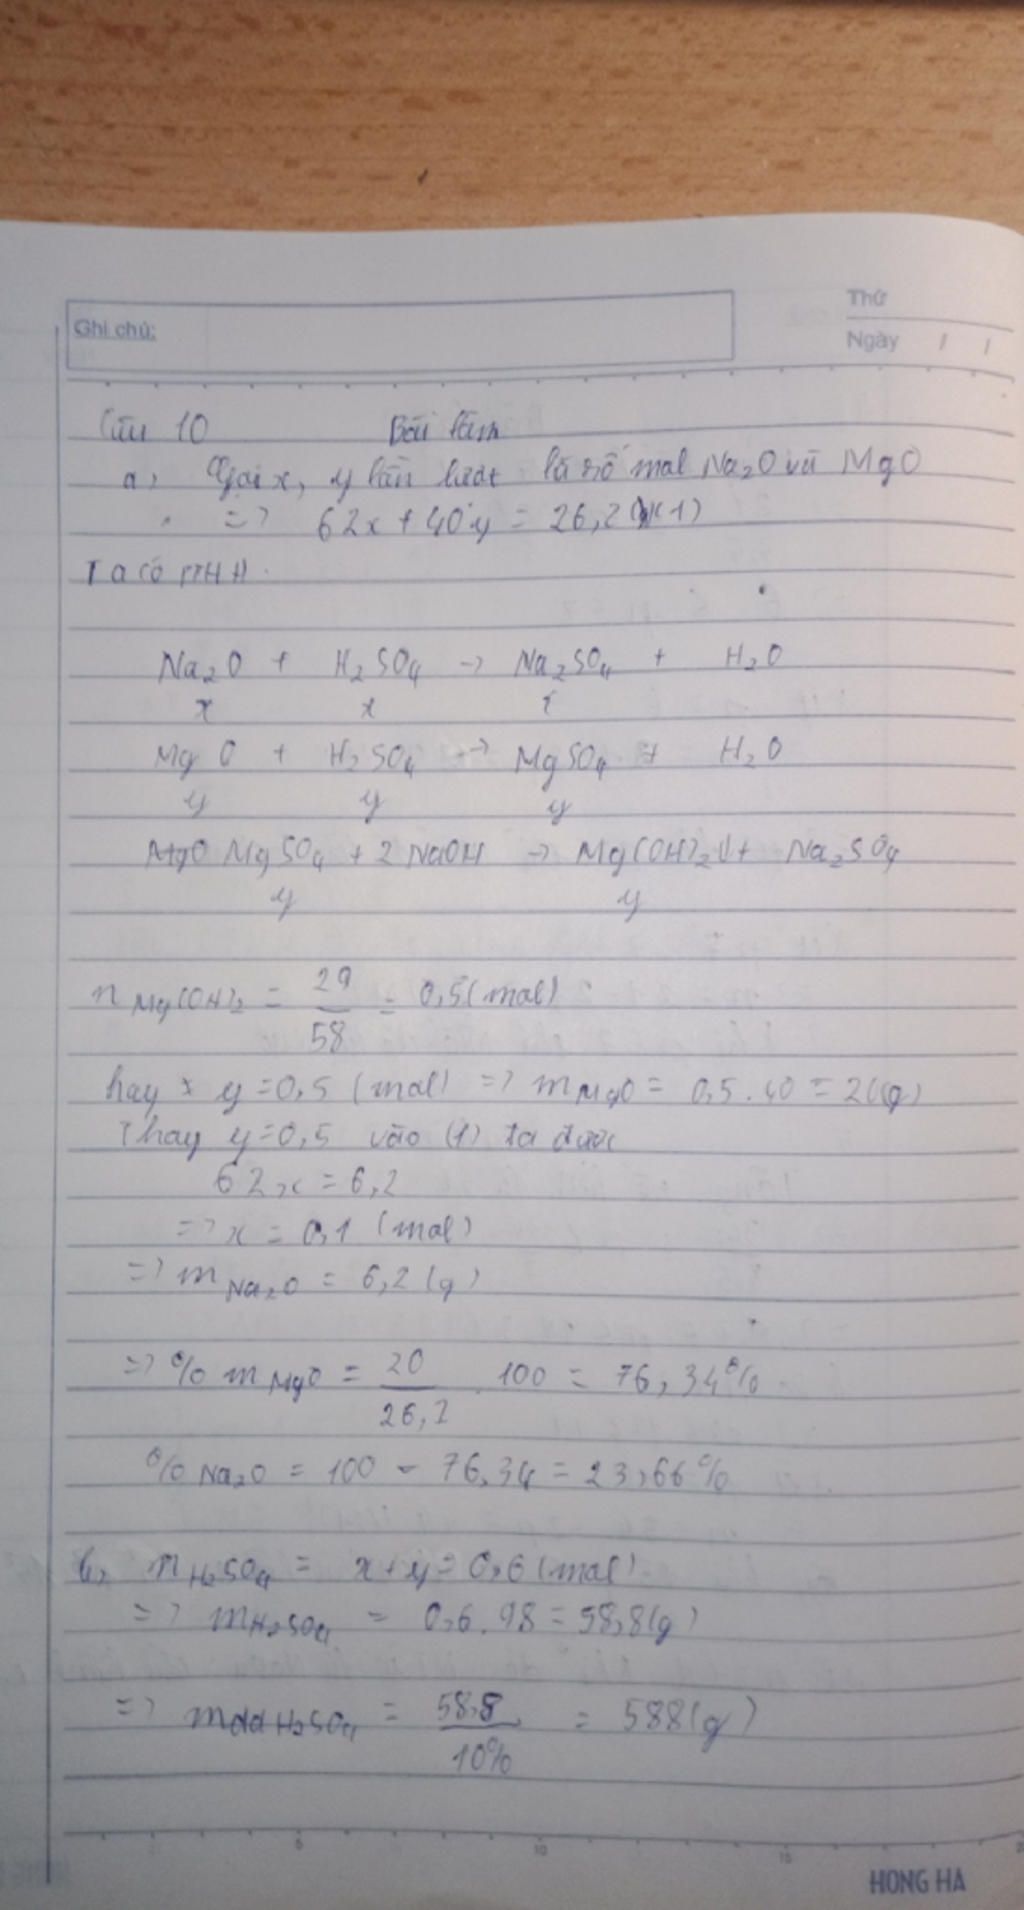 Ghi chú:
Thứ
Ngày / /
Câu 10 Bài làm
a, Gọi x, y lần lượt là số mol Na₂O và MgO
=> 62x + 40y = 26,2 (1)
Ta có PTHH
Na₂O + H₂SO₄ -> Na₂SO₄ + H₂O
x x x
MgO + H₂SO₄ -> MgSO₄ + H₂O
y y y
MgSO₄ + 2NaOH -> Mg(OH)₂↓ + Na₂SO₄
y y
n Mg(OH)₂ = 29/58 = 0,5 (mol)
hay y = 0,5 (mol) => m MgO = 0,5 . 40 = 20(g)
Thay y = 0,5 vào (1) ta được
62x = 6,2
=> x = 0,1 (mol)
=> m Na₂O = 6,2 (g)
=> % m MgO = 20/26,2 . 100 = 76,34%
% Na₂O = 100 - 76,34 = 23,66%
b, n H₂SO₄ = x + y = 0,6 (mol)
=> m H₂SO₄ = 0,6 . 98 = 58,8(g)
=> mdd H₂SO₄ = 58,8/10% = 588(g)
5 10 15
HONG HA